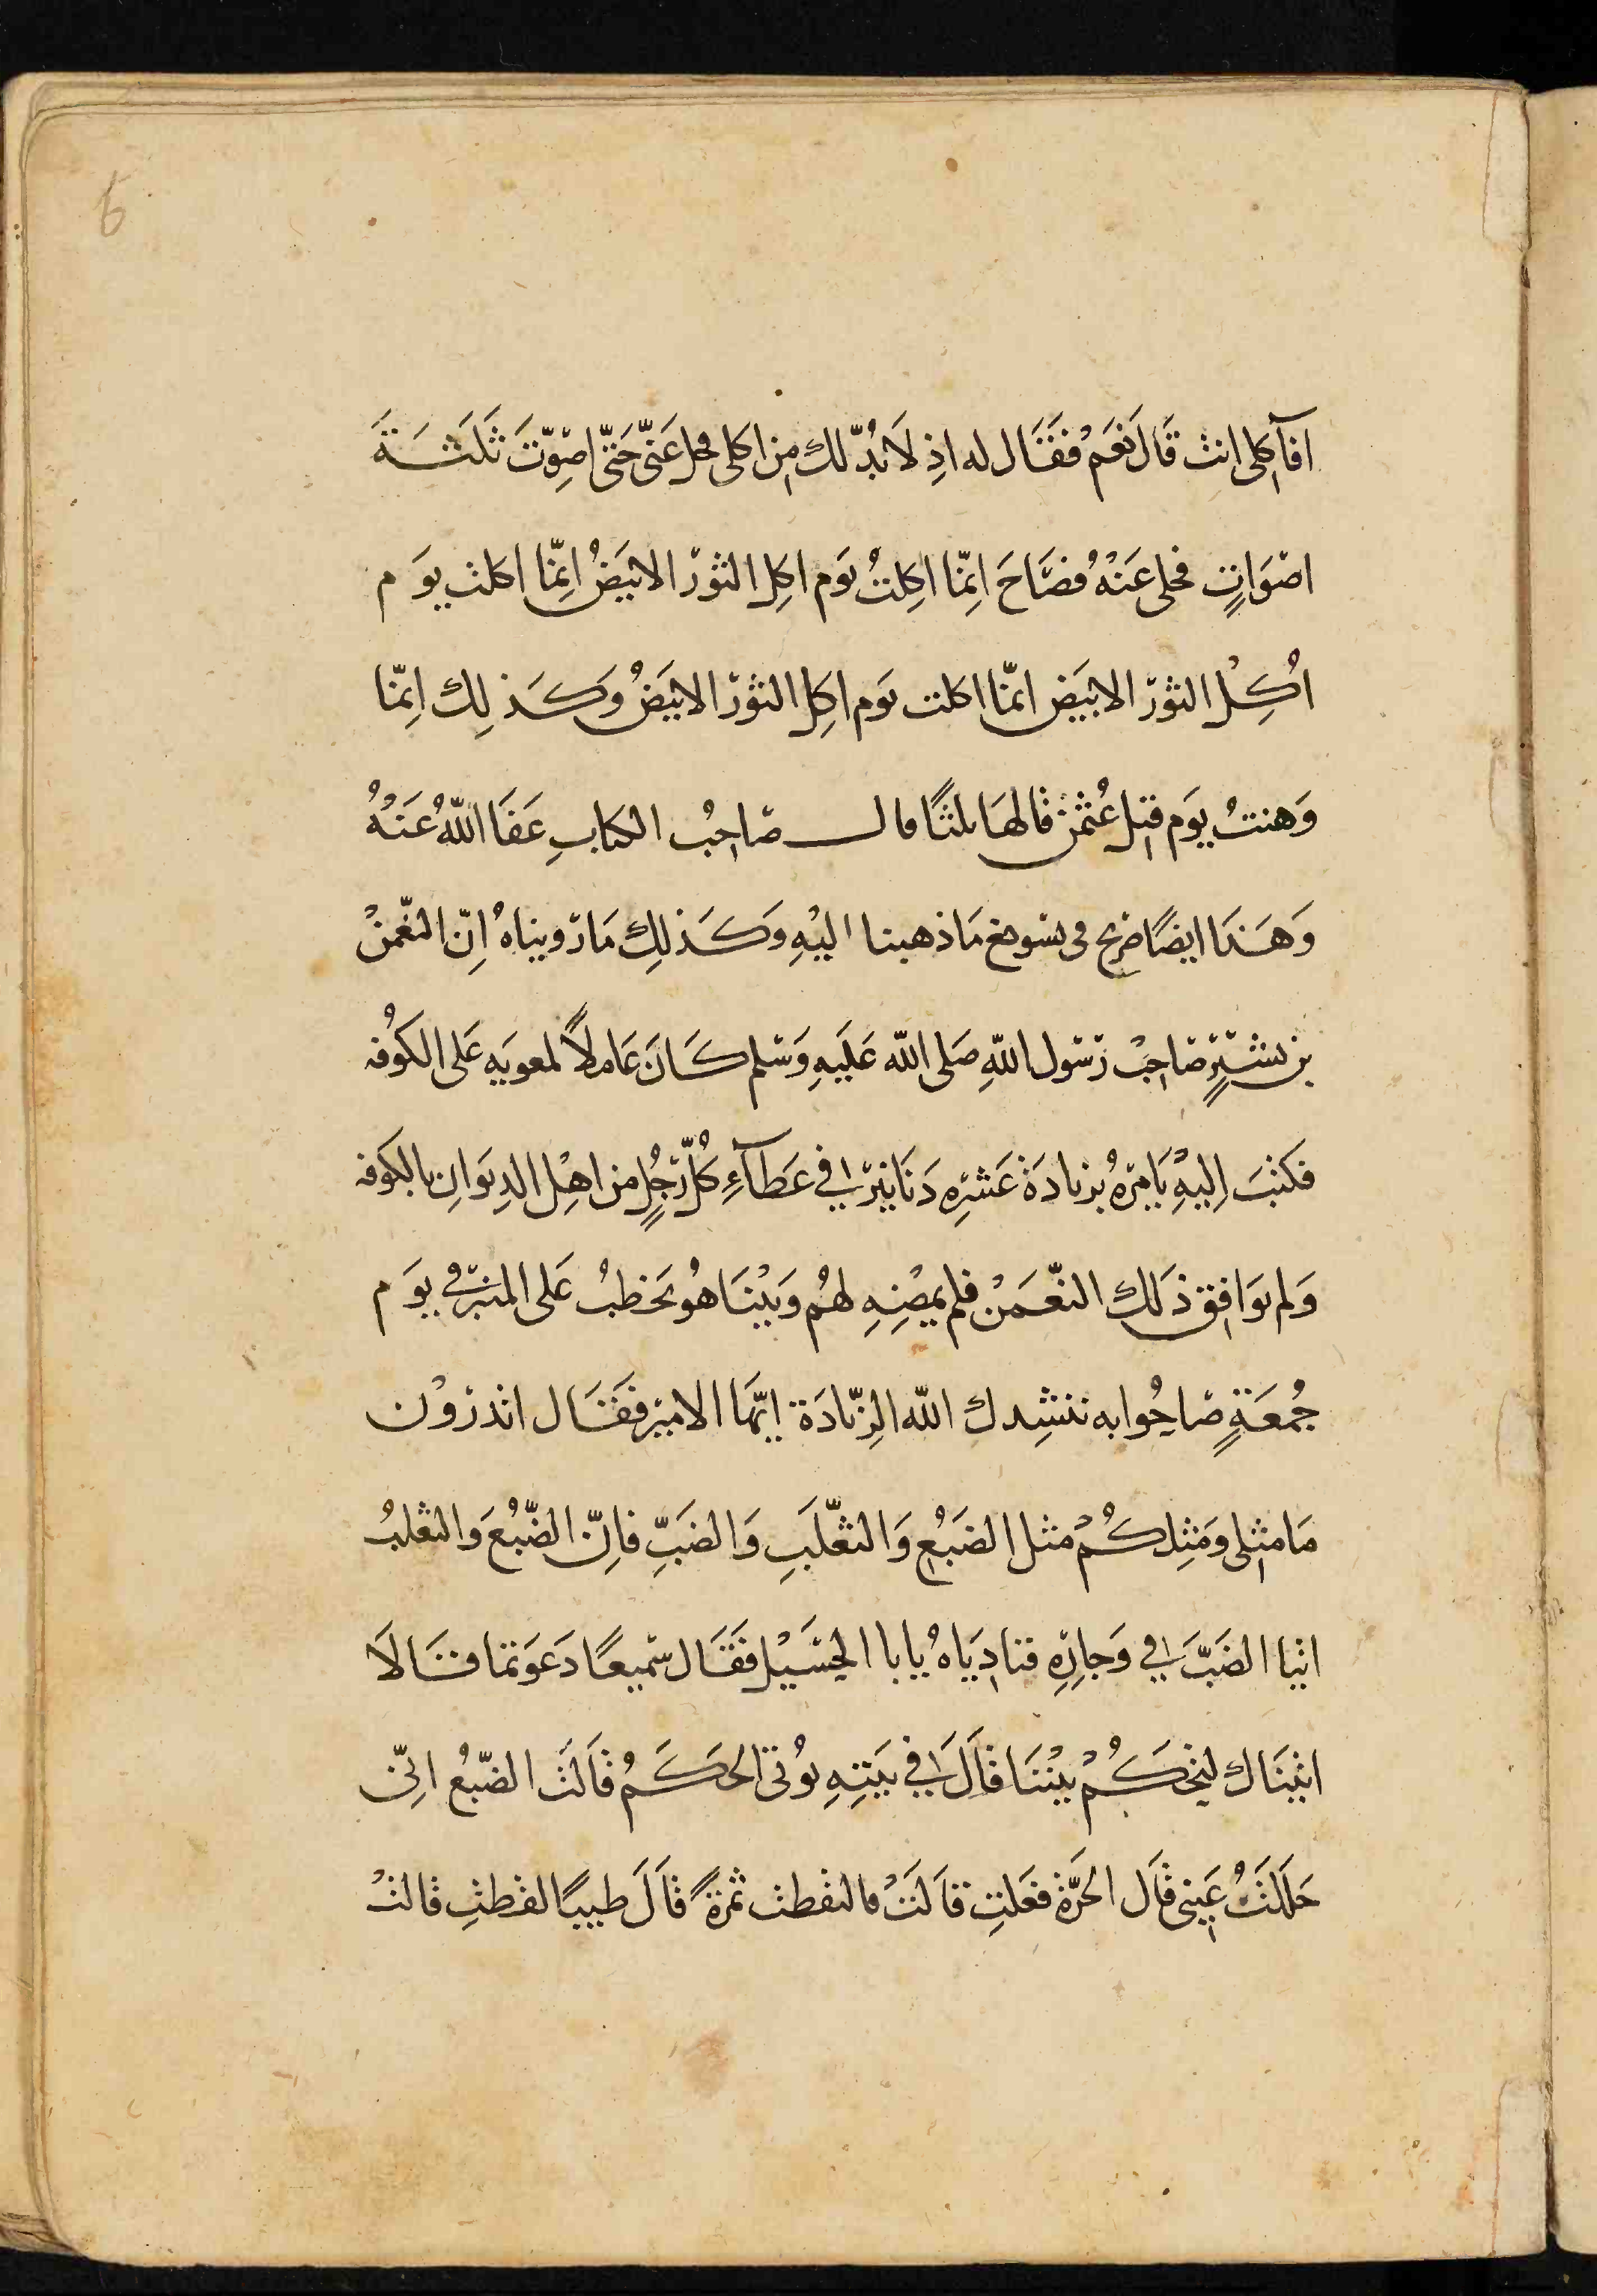 6
افآكلى انت قَالَ نَعَمْ فَقَال له اذِ لَا بُدّ لك مِن اكلى فخل عَنّى حَتّى اصَوّتَ ثَلَثَةَ
اصْوَاتٍ فخلى عَنْهُ فصَاحَ انِمّا اكِلتُ يَوم اكِل الثور الابيَضُ انِمّا اكلت يوَم
اُكِلْ الثور الابيَض انمّا اكلت يَوم اكِل الثور الابيَضُ وَكَذلِك انِمّا
وَهنتُ يوَم قتِل عُثمٰن قالهَا ثلثًا قال صَاحِبُ الكتابِ عَفَا اللّهُ عَنْهُ
وَهَذَا ايضًا صَريح فى تسويغ مَا ذهبنا اليْهِ وَكَذلِكَ مَا رَويناهُ انِّ النعّمٰنْ
بن بشيْرٍ صَاحِبْ رَسُول اللّهِ صَلى اللّه عَلَيهِ وَسَلم كَانَ عَاملاً لمعويَه عَلى الكوُفه
فكتبَ اِليهِْ يَامرُهُ بزيادَة عَشرِه دَنَانيْر فِي عَطآءِ كُلّ رَجُلٍ من اهِْل الدِيوَانِ بالكوفه
وَلم يوَافِق ذَلك النعّمَٰنْ فلم يمضِهِ لهُم وَبَيْنَا هُو يَخطبُ عَلى المنبَر فى يوَم
جُمعَةٍ صَاحُوا به ننشِدك اللّه الزِيّادَة ايّهَا الاميْر فَقَال اتدرَوْن
مَا مثِلى وَمَثِلكُمْ مثل الضَبُعِ وَالثعّلَبِ وَالضَبِّ فانِّ الضّبُعَ وَالثعْلبُ
اتيا الضَبَّ فِي وَجارِهِ فنادِيَاهُ يا با الحِسَيْل فَقَال سَميعًا دَعَوتما فقَالَا
اتيْنَاك لِتحَكُمْ بيْنَنَا قَالَ فِي بَيَتهِ يوُتى الحَكَمُ قَالَت الضّبُع انِيّ
حَلَلتُ عَينى قَال الحَرّة فعَلتِ قَالَتْ فالتقطت ثمرَةً قَالَ طيبًا لقطتِ قالتْ